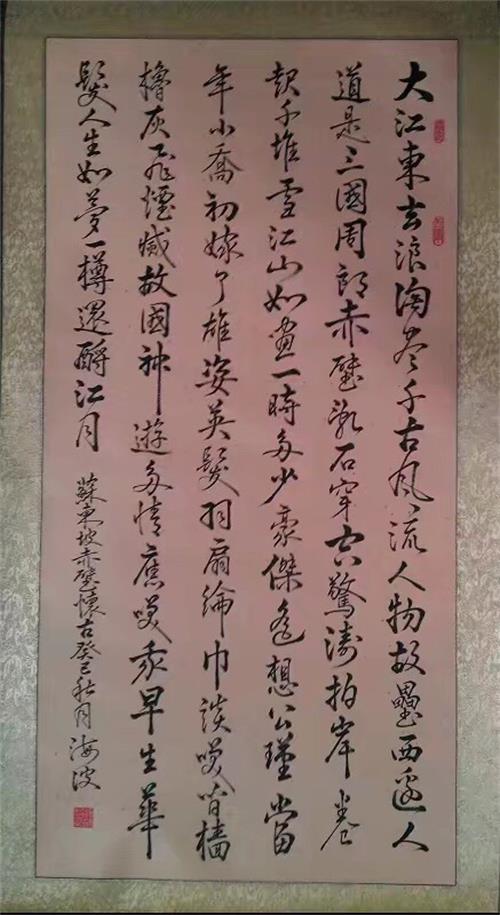 大江東去浪淘盡千古風流人物故壘西邊人
道是三國周郎赤壁亂石穿空驚濤拍岸卷
起千堆雪江山如畫一時多少豪傑遙想公瑾當
年小喬初嫁了雄姿英髮羽扇綸巾談笑間檣
櫓灰飛煙滅故國神遊多情應笑我早生華
髮人生如夢一樽還酹江月
蘇東坡赤壁懷古癸巳秋月海波